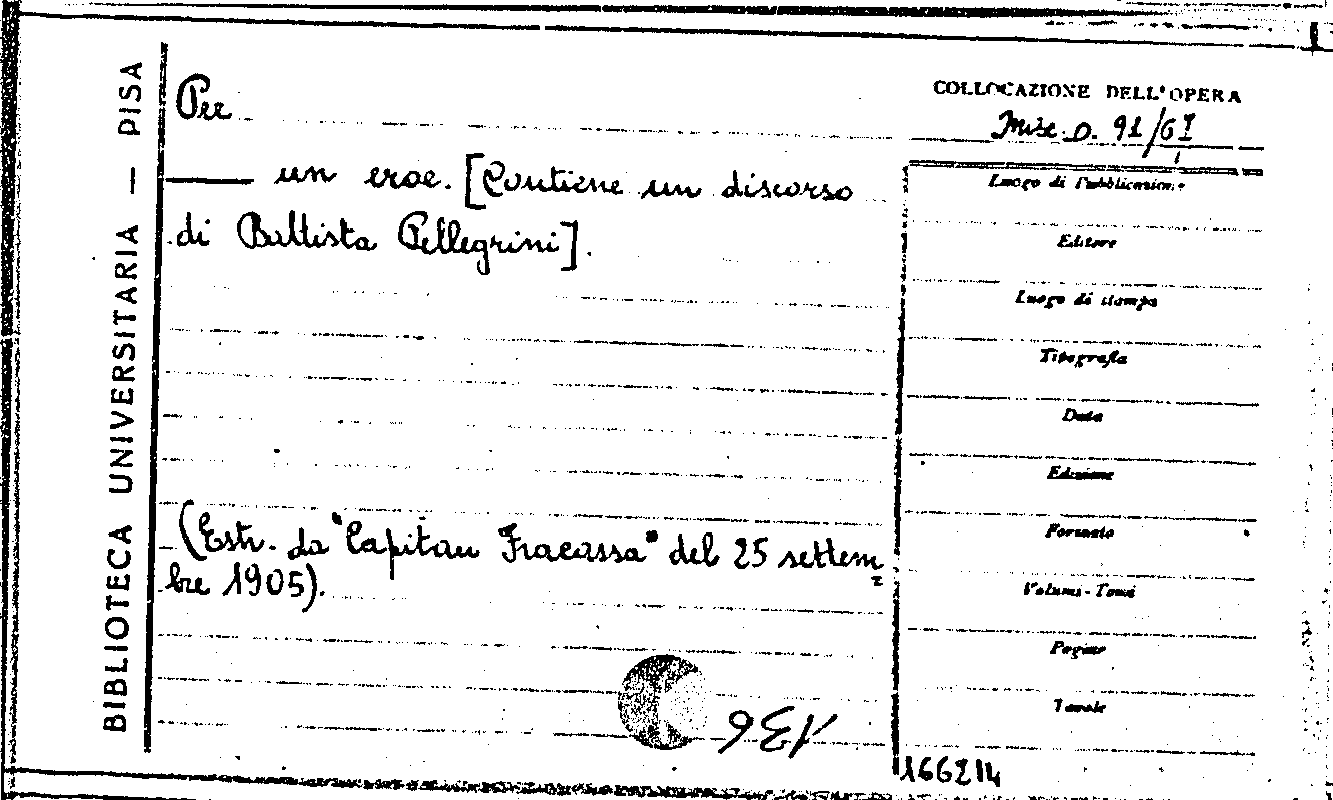 BIBLIOTECA UNIVERSITARIA — PISA
Per
un eroe. [Contiene un discorso
di Battista Pellegrini].
(Estr. da "Capitan Fracassa" del 25 settem=
bre 1905).
136
COLLOCAZIONE DELL'OPERA
Misc. D. 91/61
Luogo di Pubblicazione
Editore
Luogo di stampa
Tipografia
Data
Edizione
Formato
Volumi - Tomi
Pagine
Tavole
166214